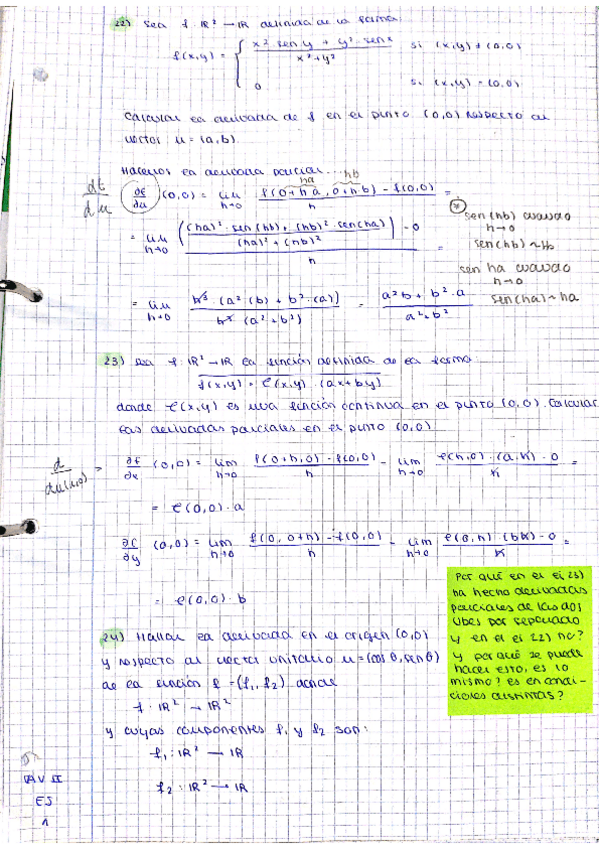 22) Sea f: ℝ² → ℝ definida de la forma:
f(x,y) = { x² sen y + y² · sen x / x² + y² si (x,y) ≠ (0,0)
0 si (x,y) = (0,0)
Calcular la derivada de f en el punto (0,0) respecto al
vector u = (a,b).
Hacemos la derivada parcial...
ha hb
df/du ∂f/∂u (0,0) = lim h→0 f(0+ha, 0+hb) - f(0,0) / h = *
= lim h→0 ((ha)² · sen(hb) + (hb)² · sen(ha) / (ha)² + (hb)²) - 0 / h =
sen(hb) cuando
h→0
sen(hb) ~ hb
sen ha cuando
h→0
sen(ha) ~ ha
= lim h→0 h³ · (a² (b) + b² · (a)) / h³ (a² + b²) = a²b + b² · a / a² + b²
23) Sea f: ℝ² → ℝ la función definida de la forma
f(x,y) = ℓ(x,y) · (ax+by)
donde ℓ(x,y) es una función continua en el punto (0,0). Calcular
las derivadas parciales en el punto (0,0)
d/du(1,0) = ∂f/∂x (0,0) = lim h→0 f(0+h,0) - f(0,0) / h = lim h→0 ℓ(h,0) · (a·h) - 0 / h =
= ℓ(0,0) · a
∂f/∂y (0,0) = lim h→0 f(0, 0+h) - f(0,0) / h = lim h→0 ℓ(0,h) · (bh) - 0 / h =
= ℓ(0,0) · b
Por qué en el ej 23)
ha hecho derivadas
parciales de las dos
vbes por separado
y en el ej 22) no?
y por qué se puede
hacer esto, es lo
mismo? es en condi-
ciones distintas?
24) Hallar la derivada en el origen (0,0)
y respecto al vector unitario u = (cos θ, sen θ)
de la función f = (f₁, f₂) donde
f: ℝ² → ℝ²
y cuyas componentes f₁ y f₂ son:
f₁: ℝ² → ℝ
f₂: ℝ² → ℝ
AV II
EJ
1